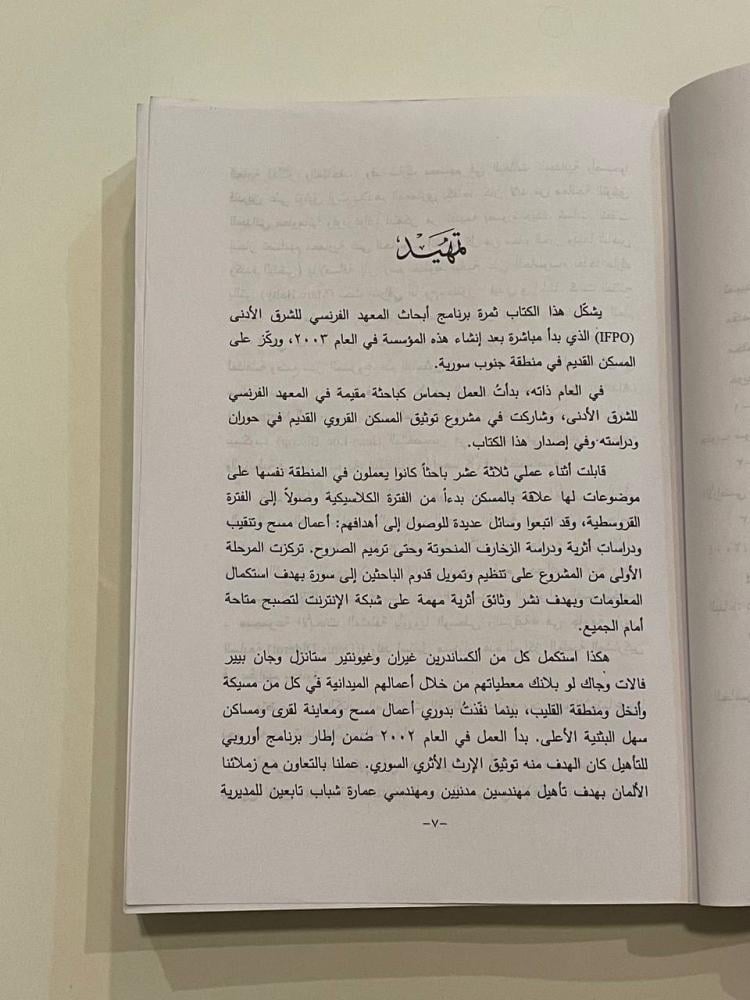 تمهيد
يشكّل هذا الكتاب ثمرة برنامج أبحاث المعهد الفرنسي للشرق الأدنى
(IFPO) الذي بدأ مباشرة بعد إنشاء هذه المؤسسة في العام ٢٠٠٣، وركّز على
المسكن القديم في منطقة جنوب سورية.
في العام ذاته، بدأتُ العمل بحماس كباحثة مقيمة في المعهد الفرنسي
للشرق الأدنى، وشاركت في مشروع توثيق المسكن القروي القديم في حوران
ودراسته وفي إصدار هذا الكتاب.
قابلت أثناء عملي ثلاثة عشر باحثاً كانوا يعملون في المنطقة نفسها على
موضوعات لها علاقة بالمسكن بدءاً من الفترة الكلاسيكية وصولاً إلى الفترة
القروسطية، وقد اتبعوا وسائل عديدة للوصول إلى أهدافهم: أعمال مسح وتنقيب
ودراسات أثرية ودراسة الزخارف المنحوتة وحتى ترميم الصروح. تركزت المرحلة
الأولى من المشروع على تنظيم وتمويل قدوم الباحثين إلى سورة بهدف استكمال
المعلومات وبهدف نشر وثائق أثرية مهمة على شبكة الإنترنت لتصبح متاحة
أمام الجميع.
هكذا استكمل كل من ألكساندرين غيران وغيونتير ستانزل وجان بيير
فالات وجاك لو بلانك معطياتهم من خلال أعمالهم الميدانية في كل من مسيكة
وأنخل ومنطقة القليب، بينما نفّذتُ بدوري أعمال مسح ومعاينة لقرى ومساكن
سهل البثنية الأعلى. بدأ العمل في العام ٢٠٠٢ ضمن إطار برنامج أوروبي
للتأهيل كان الهدف منه توثيق الإرث الأثري السوري. عملنا بالتعاون مع زملائنا
الألمان بهدف تأهيل مهندسين مدنيين ومهندسي عمارة شباب تابعين للمديرية
–٧–